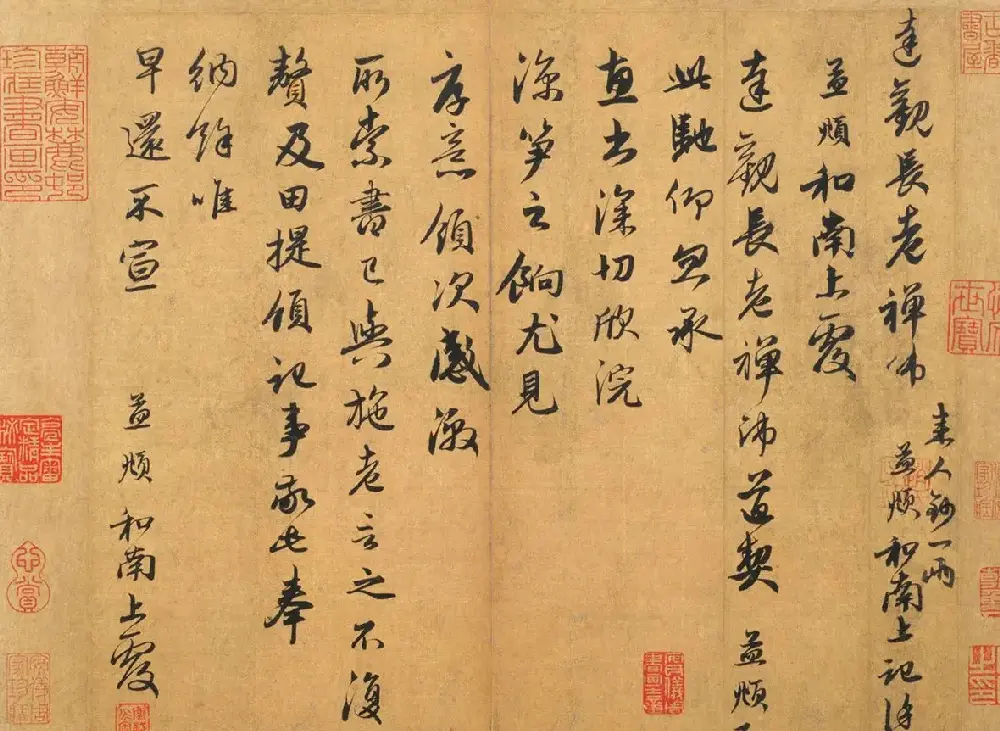 達觀長老禪師
來人鈔一兩
孟頫和南上記
孟頫和南上覆
達觀長老禪師道契 孟頫
此馳仰忽承
惠書深切欣浣
涼笋之餉尤見
厚意領次感激
所索書已與施老言之不復
贅及田提領記事敬此奉
納餘唯
早還不宣
孟頫和南上覆
朝鮮安麓邨珍藏書畫印
心賞